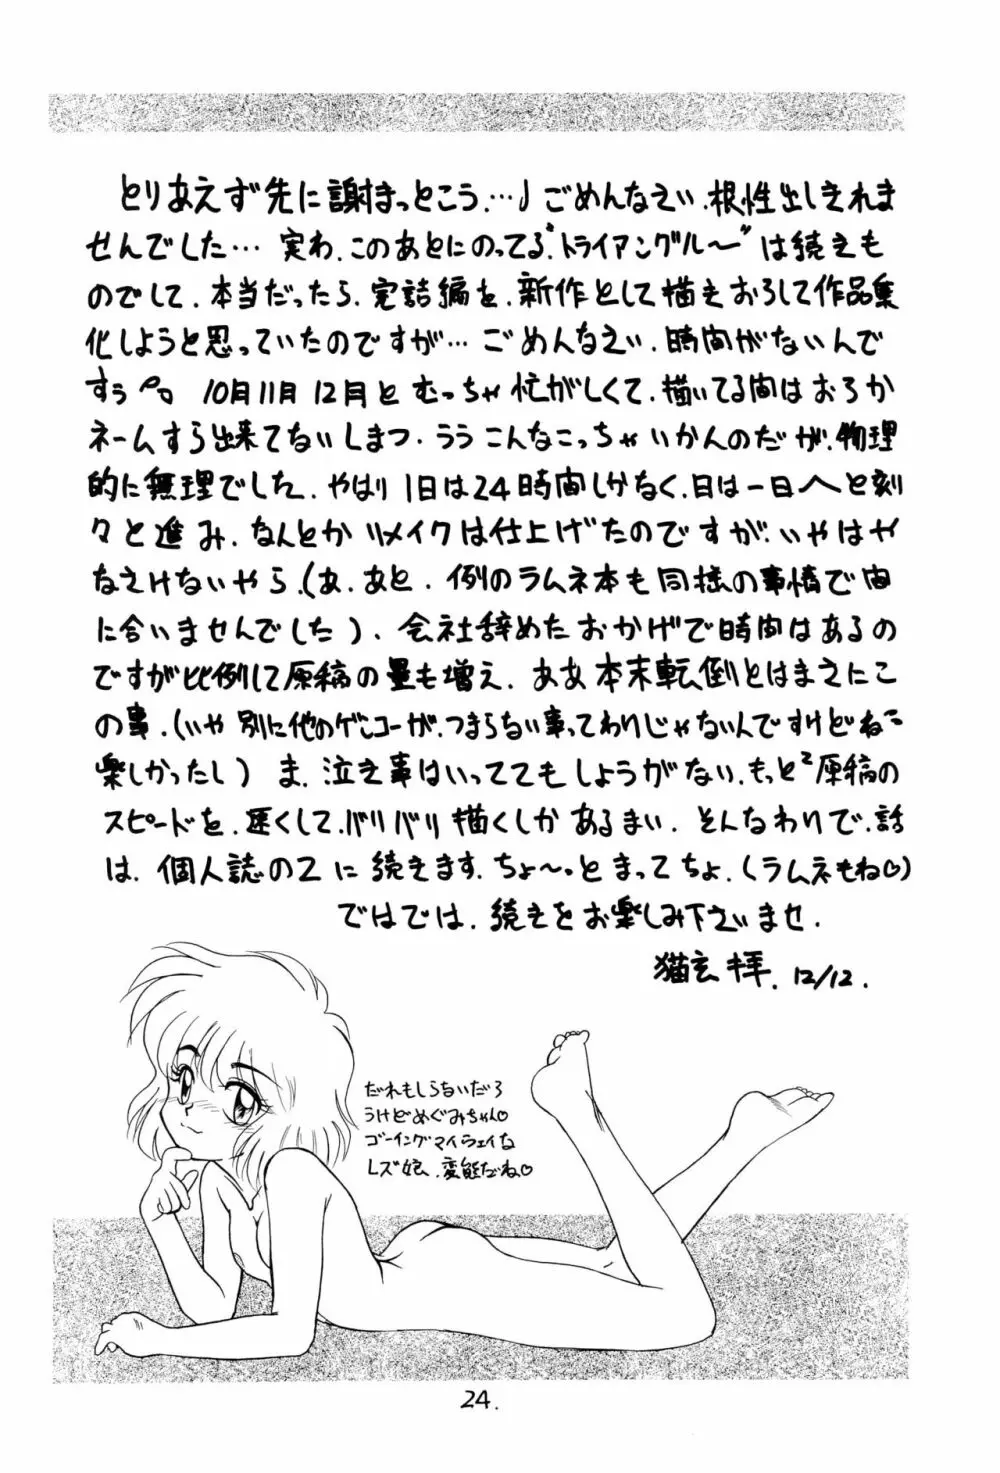 とりあえず先に謝まっとこう…♩ごめんなさい、根性出しきれま
せんでした… 実わ、このあとにのってる"トライアングル〜"は続きも
のでして、本当だったら、完結編を、新作として描きおろして作品集
化しようと思っていたのですが… ごめんなさい、時間がないんで
すぅ 10月11月12月と むっちゃ忙がしくて、描いてる間はおろか
ネームすら出来てないしまつ、うう こんなこっちゃいかんのだが、物理
的に無理でした、やはり1日は24時間しかなく、日は一日へと刻
々と進み、なんとかリメイクは仕上げたのですが、いやはや
なさけないやら、(あ、あと、例のラムネ本も同様の事情で間
に合いませんでした)、会社辞めたおかげで時間はあるの
ですが比例して原稿の量も増え、ああ本末転倒とはまさにこ
の事、(いや別に他のゲンコーが、つまらない事ってわけじゃないんですけどね
楽しかったし) ま、泣き事はいっててもしょうがない、もっと²原稿の
スピードを、速くして、バリバリ描くしかあるまい、そんなわけで、話
は、個人誌の2に続きます、ちょ〜っとまってちょ、(ラムネもね♡)
ではでは、続きをお楽しみ下さいませ、
猫玄 拝、12/12.
だれもしらないだろ
うけどめぐみちゃん♡
ゴーイングマイウェイな
レズ娘、変態だね♡
24.